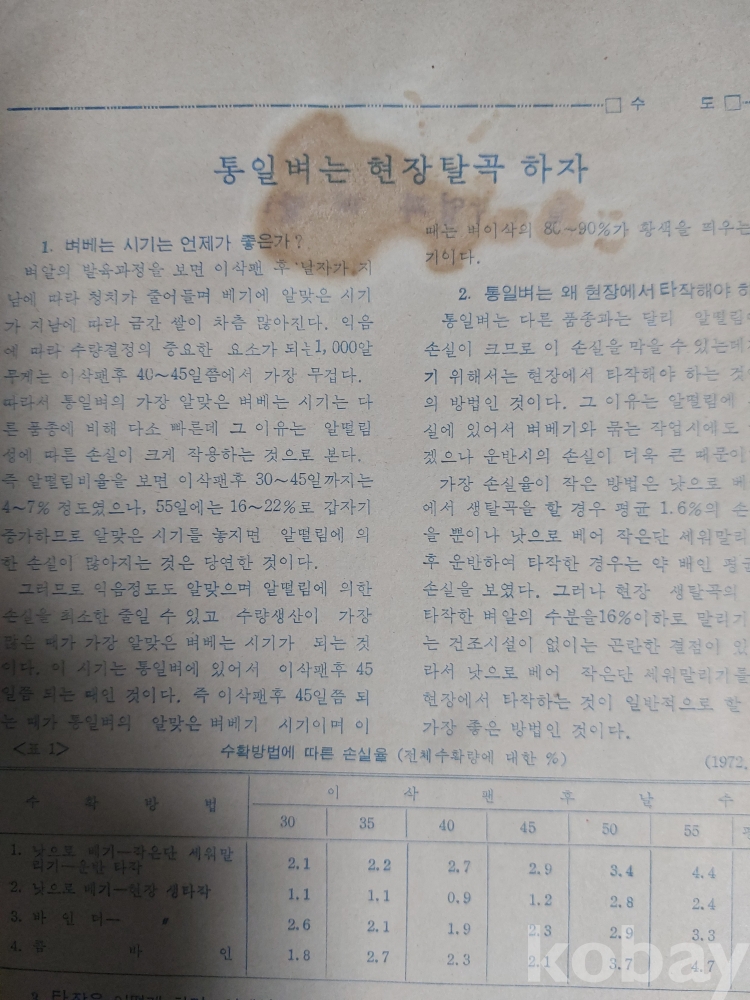 수 도
통일벼는 현장탈곡 하자
1. 벼베는 시기는 언제가 좋은가?
벼알의 발육과정을 보면 이삭팬 후 날자가 지
남에 따라 청치가 줄어들며 베기에 알맞은 시기
가 지남에 따라 금간 쌀이 차츰 많아진다. 익음
에 따라 수량결정의 중요한 요소가 되는 1,000알
무게는 이삭팬후 40~45일쯤에서 가장 무겁다.
따라서 통일벼의 가장 알맞은 벼베는 시기는 다
른 품종에 비해 다소 빠른데 그 이유는 알떨림
성에 따른 손실이 크게 작용하는 것으로 본다.
즉 알떨림비율을 보면 이삭팬후 30~45일까지는
4~7% 정도였으나, 55일에는 16~22%로 갑자기
증가하므로 알맞은 시기를 놓지면 알떨림에 의
한 손실이 많아지는 것은 당연한 것이다.
그러므로 익음정도도 알맞으며 알떨림에 의한
손실을 최소한 줄일 수 있고 수량생산이 가장
많은 때가 가장 알맞은 벼베는 시기가 되는 것
이다. 이 시기는 통일벼에 있어서 이삭팬후 45
일쯤 되는 때인 것이다. 즉 이삭팬후 45일쯤 되
는 때가 통일벼의 알맞은 벼베기 시기이며 이
때는 벼이삭의 80~90%가 황색을 띄우는
기이다.
2. 통일벼는 왜 현장에서 타작해야 하
통일벼는 다른 품종과는 달리 알떨림에
손실이 크므로 이 손실을 막을 수 있는데
기 위해서는 현장에서 타작해야 하는 것이
의 방법인 것이다. 그 이유는 알떨림에
실에 있어서 벼베기와 묶는 작업시에도
겠으나 운반시의 손실이 더욱 큰 때문이
가장 손실율이 작은 방법은 낫으로 베
에서 생탈곡을 할 경우 평균 1.6%의 손
을 뿐이나 낫으로 베어 작은단 세워말리
후 운반하여 타작한 경우는 약 배인 평균
손실을 보였다. 그러나 현장 생탈곡의
타작한 벼알의 수분을 16%이하로 말리기
는 건조시설이 없이는 곤란한 결점이 있
라서 낫으로 베어 작은단 세워말리기를
현장에서 타작하는 것이 일반적으로 할
가장 좋은 방법인 것이다.
<표 1> 수확방법에 따른 손실율 (전체수확량에 대한 %) (1972.
수 확 방 법 이 삭 팬 후 날 수
30 35 40 45 50 55 평
1. 낫으로 베기—작은단 세워말
리기—운반 타작 2.1 2.2 2.7 2.9 3.4 4.4
2. 낫으로 베기—현장 생타작 1.1 1.1 0.9 1.2 2.8 2.4
3. 바 인 더— 〃 2.6 2.1 1.9 2.3 2.9 3.3
4. 바 인 1.8 2.7 2.3 2.1 3.7 4.7
kobay